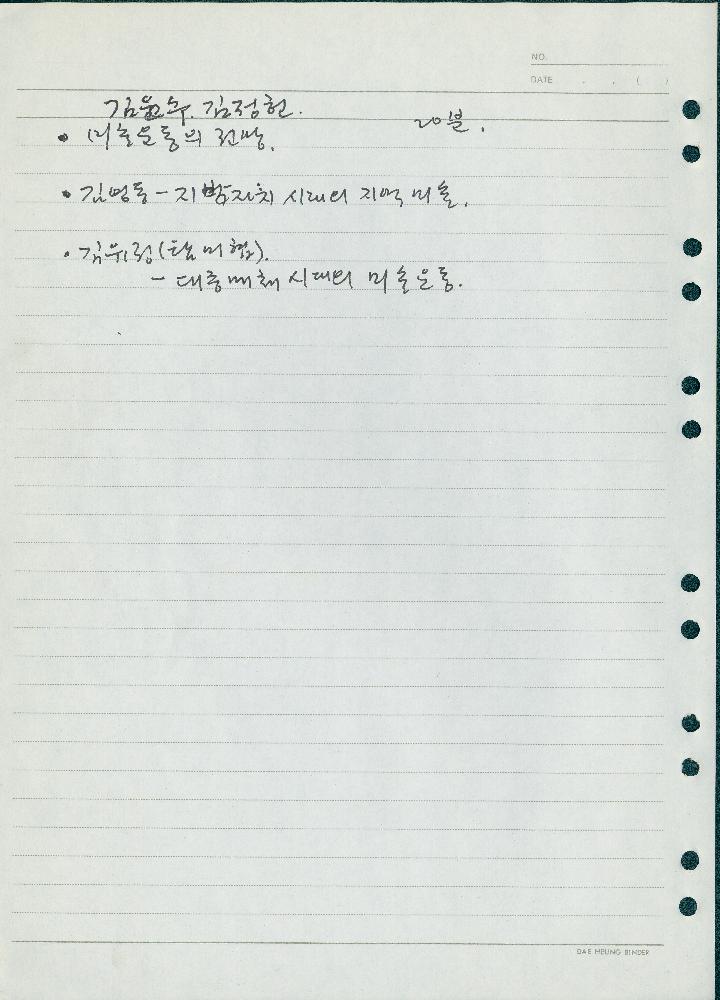 NO.
DATE . . ( )
김윤수. 김정헌.
20분.
• 미술운동의 전망.
• 김영동 - 지방자치 시대의 지역 미술.
• (탐미협).
- 대중매체 시대의 미술운동.
DAE HEUNG BINDER